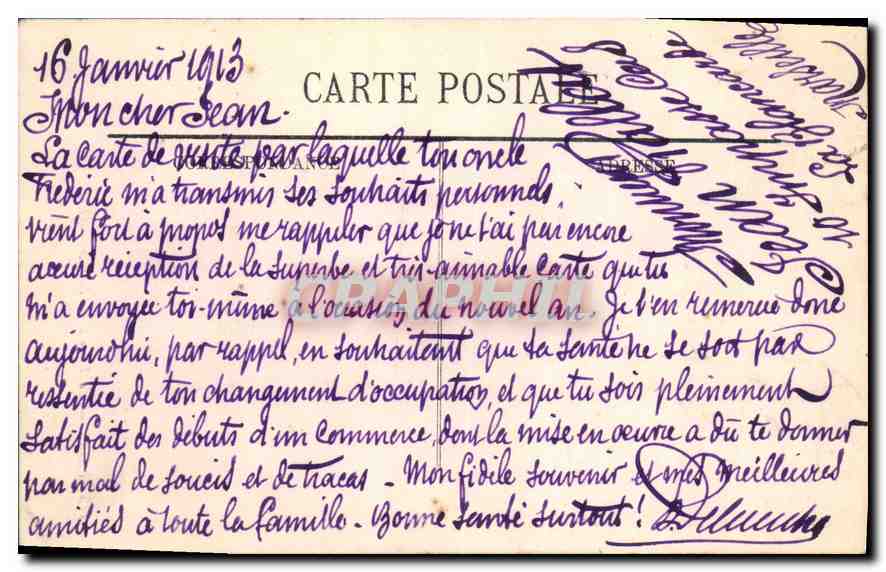 16 Janvier 1913
CARTE POSTALE
Mon cher Jean.
La carte de visite par laquelle ton oncle
CORRESPONDANCE
ADRESSE
Frédéric m'a transmis ses souhaits personnels,
vient fort à propos me rappeler que je ne t'ai pas encore
accusé réception de la superbe et très-aimable carte que tu
m'a envoyée toi-même à l'occasion du nouvel an. Je t'en remercie donc
aujourd'hui, par rappel, en souhaitant que ta santé ne se soit pas
ressentie de ton changement d'occupation, et que tu sois pleinement
satisfait des débuts d'un commerce, dont la mise en œuvre a dû te donner
pas mal de soucis et de tracas - Mon fidèle souvenir et mes meilleures
amitiés à toute la famille - Bonne santé surtout!
Monsieur
Jean
CRAPHIL